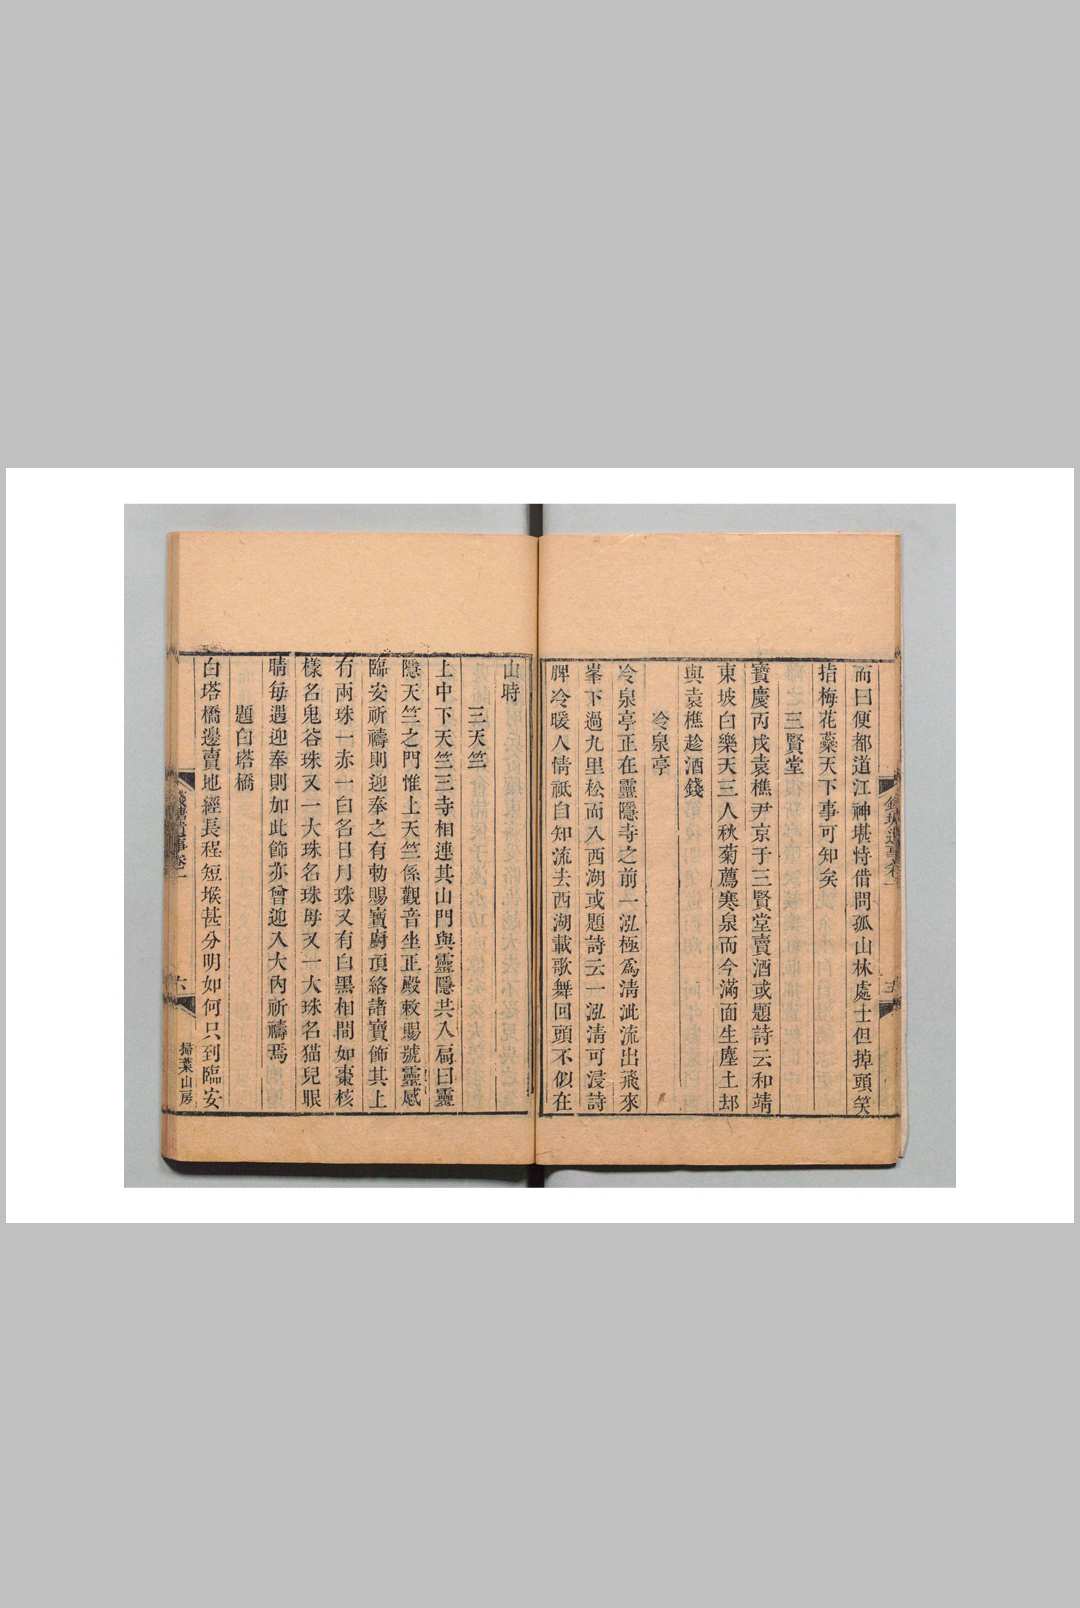 而曰便都道江神堪恃借問孤山林處士但掉頭笑
指梅花蘂天下事可知矣
三賢堂
寶慶丙戌袁樵尹京于三賢堂賣酒或題詩云和靖
東坡白樂天三人秋菊薦寒泉而今滿面生塵土却
與袁樵趁酒錢
冷泉亭
冷泉亭正在靈隱寺之前一泓極爲淸泚流出飛來
峯下過九里松而入西湖或題詩云一泓淸可浸詩
脾冷暖人情祇自知流去西湖載歌舞回頭不似在
山時
三天竺
上中下天竺三寺相連其山門與靈隱共入扁曰靈
隱天竺之門惟上天竺係觀音坐正殿敕賜號靈感
臨安祈禱則迎奉之有勅賜寶廚頂絡諸寶飾其上
有兩珠一赤一白名日月珠又有白黑相間如棗核
樣名鬼谷珠又一大珠名珠母又一大珠名猫兒眼
睛每遇迎奉則如此飾亦曾迎入大內祈禱焉
題白塔橋
白塔橋邊賣地經長程短堠甚分明如何只到臨安
錢塘遺事卷一
六
掃葉山房